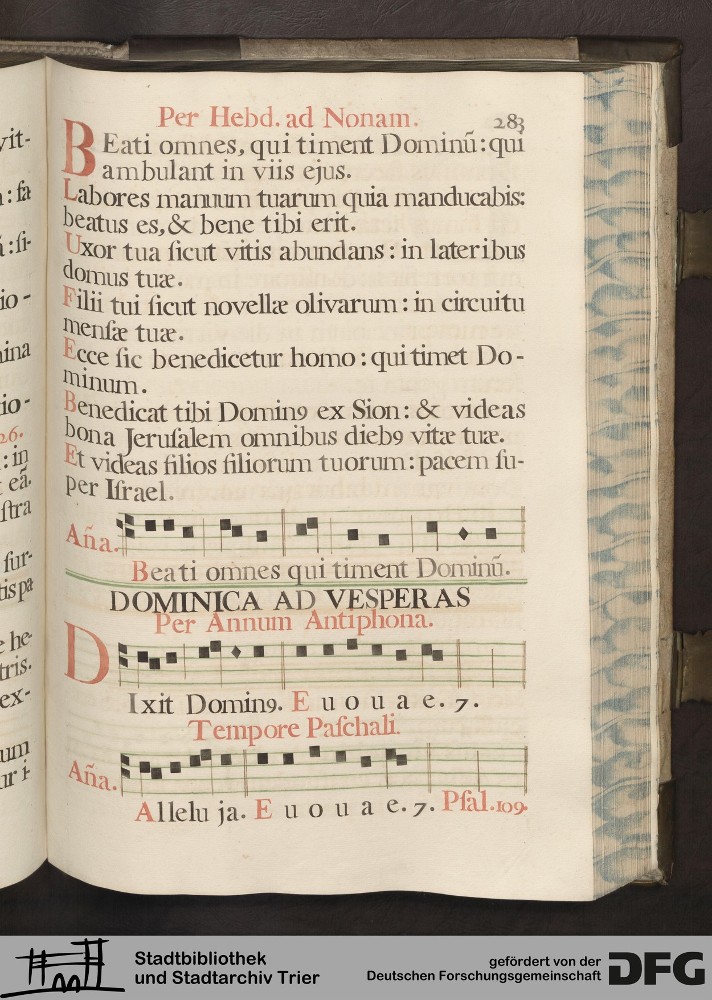 Per Hebd. ad Nonam. 283
BEati omnes, qui timent Dominũ: qui
ambulant in viis ejus.
Labores manuum tuarum quia manducabis:
beatus es, & bene tibi erit.
Uxor tua ſicut vitis abundans: in lateribus
domus tuæ.
Filii tui ſicut novellæ olivarum: in circuitu
menſæ tuæ.
Ecce ſic benedicetur homo: qui timet Do-
minum.
Benedicat tibi Dominꝰ ex Sion: & videas
bona Jeruſalem omnibus diebꝰ vitæ tuæ.
Et videas filios filiorum tuorum: pacem ſu-
per Iſrael.
Aña.
Beati omnes qui timent Dominũ.
DOMINICA AD VESPERAS
Per Annum Antiphona.
DIxit Dominꝰ. E u o u a e. 7.
Tempore Paſchali.
Aña.
Allelu ja. E u o u a e. 7. Pſal. 109.
vit-
: fa
: ſi-
io-
ina
io-
26.
: in
eã.
ſtra
ſur-
tis pa
he-
tris.
ex-
um
ur i-
Stadtbibliothek
und Stadtarchiv Trier
gefördert von der
Deutschen Forschungsgemeinschaft
DFG